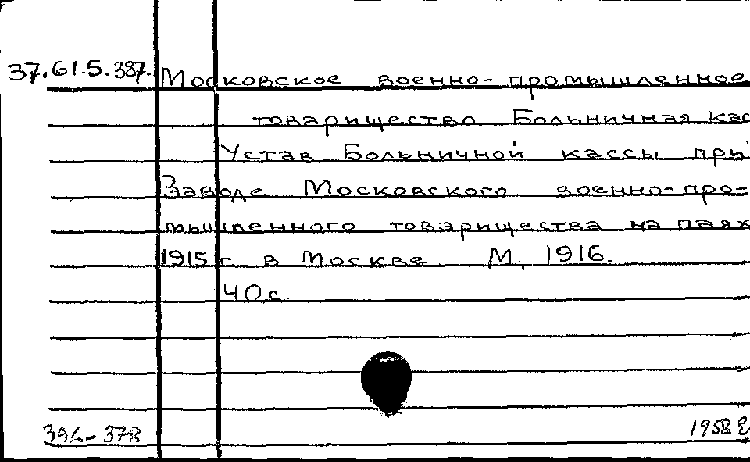 37.61.5.387. Московское военно-промышленное
товарищество Больничная кас
Устав Больничной кассы при
Заводе Московского военно-про-
мышленного товарищества на паях
1915 г. в Москве М, 1916.
40с
1958